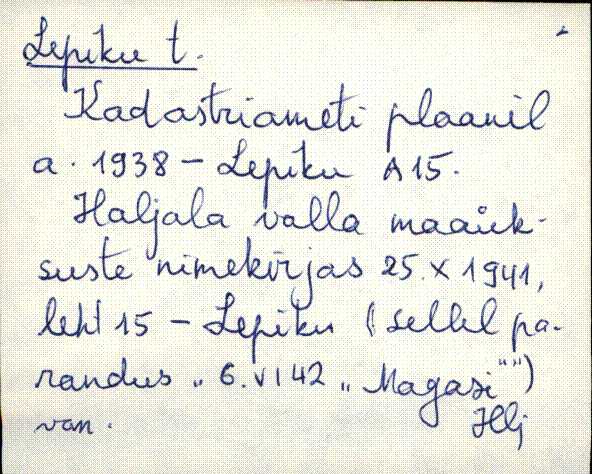 Lepiku t.
Kadastriameti plaanil
a. 1938 - Lepiku A 15.
Haljala valla maaük-
suste nimekirjas 25. X 1941,
leht 15 - Lepiku (sellel pa-
randus „6. VI 42 „Magasi“")
van. Hlj